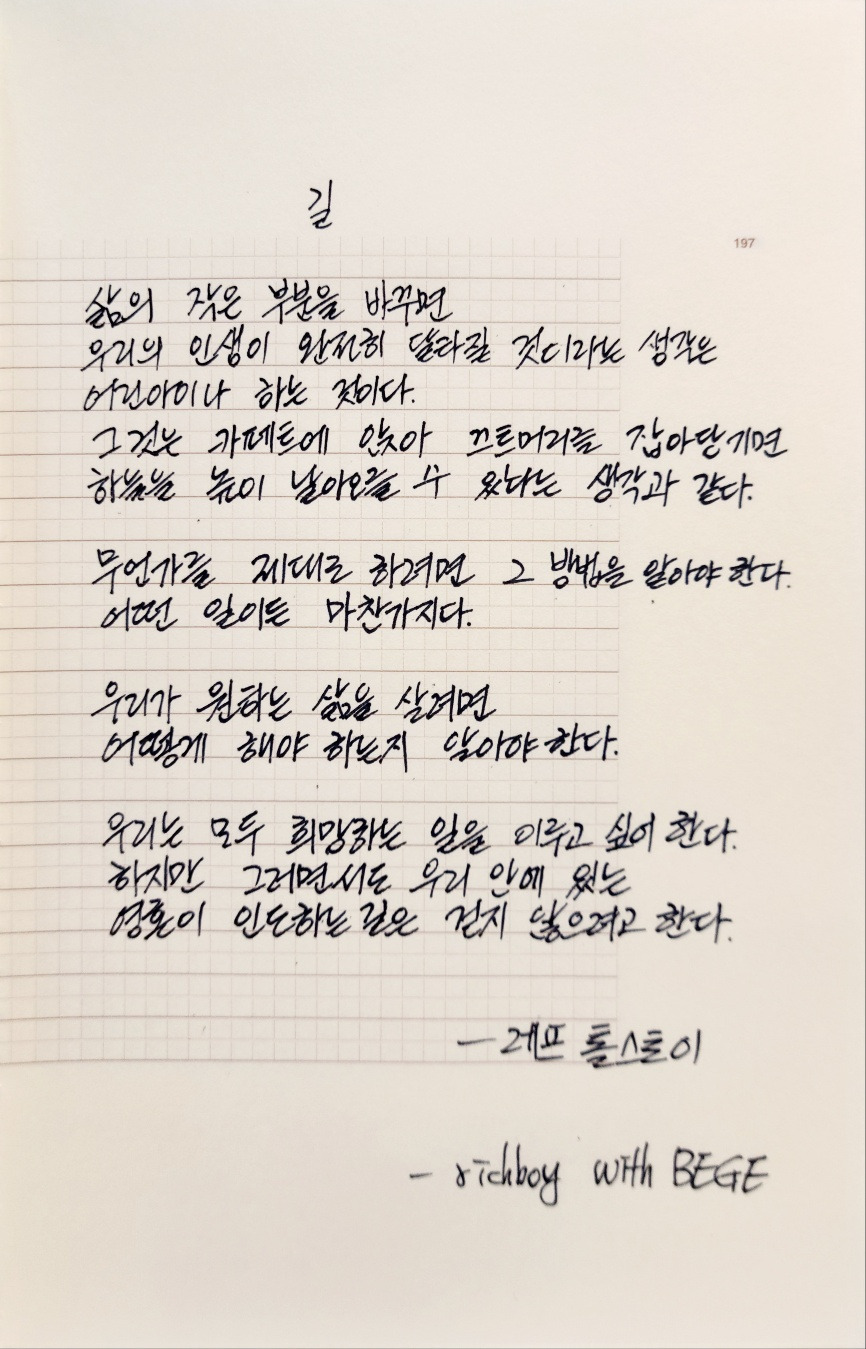 길
197
삶의 작은 부분을 바꾸면
우리의 인생이 완전히 달라질 것이라는 생각은
어린아이나 하는 것이다.
그것은 카페트에 앉아 끄트머리를 잡아당기면
하늘을 높이 날아오를 수 있다는 생각과 같다.
무언가를 제대로 하려면 그 방법을 알아야 한다.
어떤 일이든 마찬가지다.
우리가 원하는 삶을 살려면
어떻게 해야 하는지 알아야 한다.
우리는 모두 희망하는 일을 이루고 싶어 한다.
하지만 그러면서도 우리 안에 있는
영혼이 인도하는 길은 걷지 않으려고 한다.
- 레프 톨스토이
- richboy with BEGE